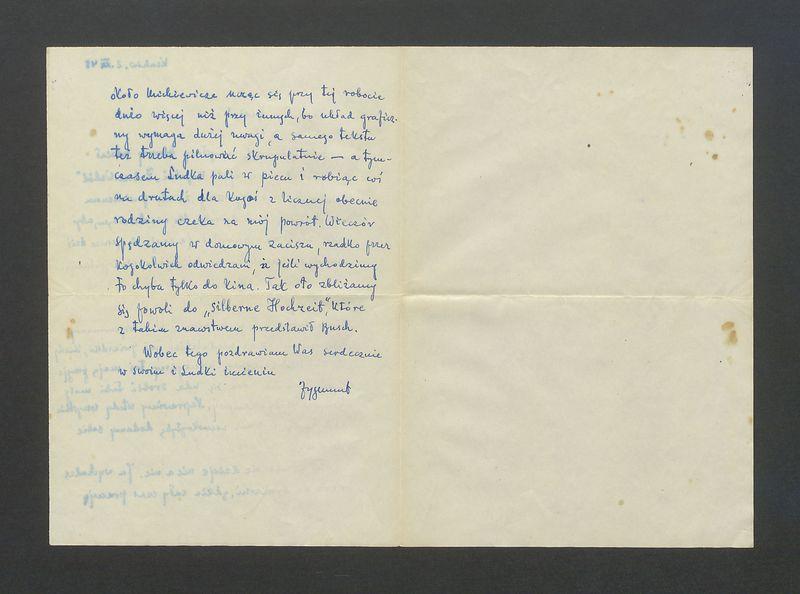 około Mickiewicza ucząc się przy tej robocie
dużo więcej niż przy innych, bo układ graficz-
ny wymaga dużej uwagi, a samego tekstu
też trzeba pilnować skrupulatnie — a tym-
czasem Ludka pali w piecu i robiąc coś
na drutach dla kogoś z licznej obecnie
rodziny czeka na mój powrót. Wieczór
spędzamy w domowym zaciszu, rzadko przez
kogokolwiek odwiedzani, a jeśli wychodzimy
to chyba tylko do kina. Tak oto zbliżamy
się powoli do „Silberne Hochzeit", które
z takim znawstwem przedstawił Busch.
Wobec tego pozdrawiam Was serdecznie
w swoim i Ludki imieniu
Zygmunt